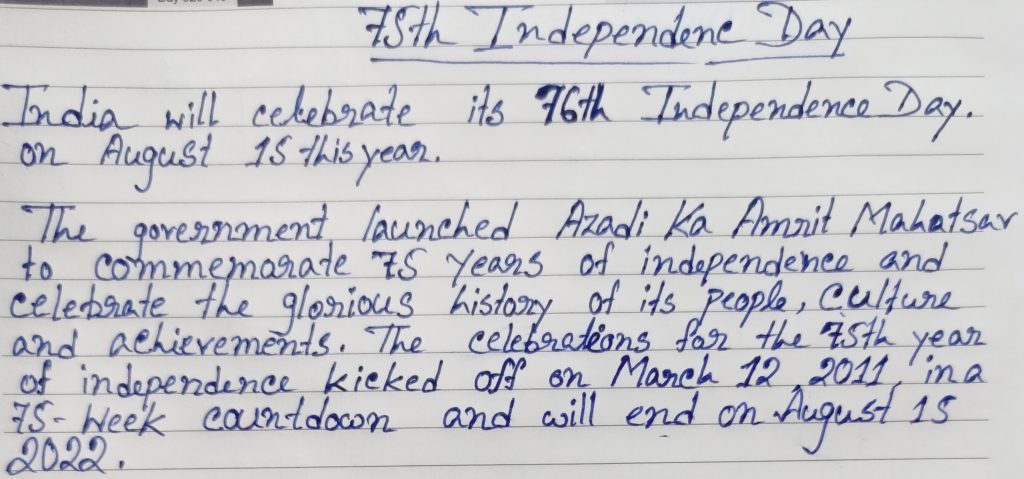 75th Independenc Day
India will celebrate its 76th Independence Day.
on August 15 this year.
The government launched Azadi Ka Amrit Mahatsav
to commemarate 75 years of independence and
celebrate the glorious history of its people, Culture
and achievements. The celebrations for the 75th year
of independence kicked off on March 12, 2011, in a
75-Week countdown and will end on August 15
2022.